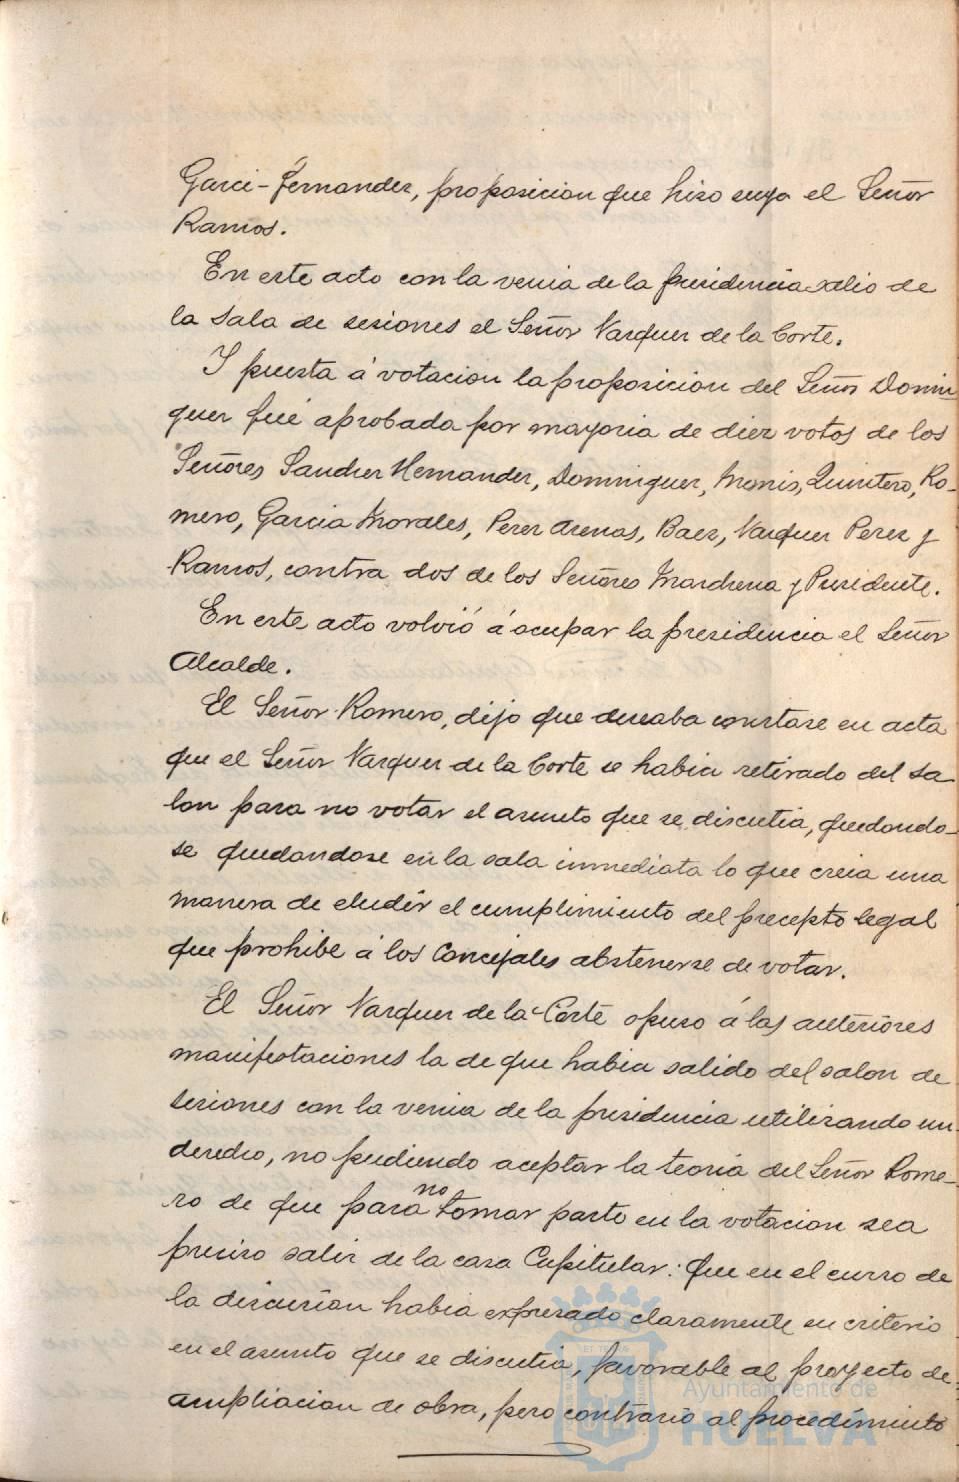 Garci-Fernandez, proposicion que hizo suya el Señor
Ramos.
En este acto con la venia de la presidencia salio de
la sala de sesiones el Señor Vazquez de la Corte.
Y puesta á votacion la proposicion del Señor Domin-
guez fué aprobada por mayoria de diez votos de los
Señores Sanchez Hernandez, Dominguez, Monis, Quintero, Ro-
mero, Garcia Morales, Perez Arenas, Baez, Vazquez Perez y
Ramos, contra dos de los Señores Marchena y Presidente.
En este acto volvió á ocupar la presidencia el Señor
Alcalde.
El Señor Romero, dijo que deseaba constase en acta
que el Señor Vazquez de la Corte se habia retirado del sa-
lon para no votar el asunto que se discutia, quedando-
se quedandose en la sala inmediata lo que creia una
manera de eludir el cumplimiento del precepto legal
que prohibe á los Concejales abstenerse de votar.
El Señor Vazquez de la Corte opuso á las anteriores
manifestaciones la de que habia salido del salon de
sesiones con la venia de la presidencia utilizando un
derecho, no pudiendo aceptar la teoria del Señor Rome-
ro de que para no tomar parte en la votacion sea
preciso salir de la casa Capitular: que en el curso de
la discusion habia expresado claramente su criterio
en el asunto que se discutia, favorable al proyecto de
ampliacion de obra, pero contrario al procedimiento
Ayuntamiento de
HUELVA